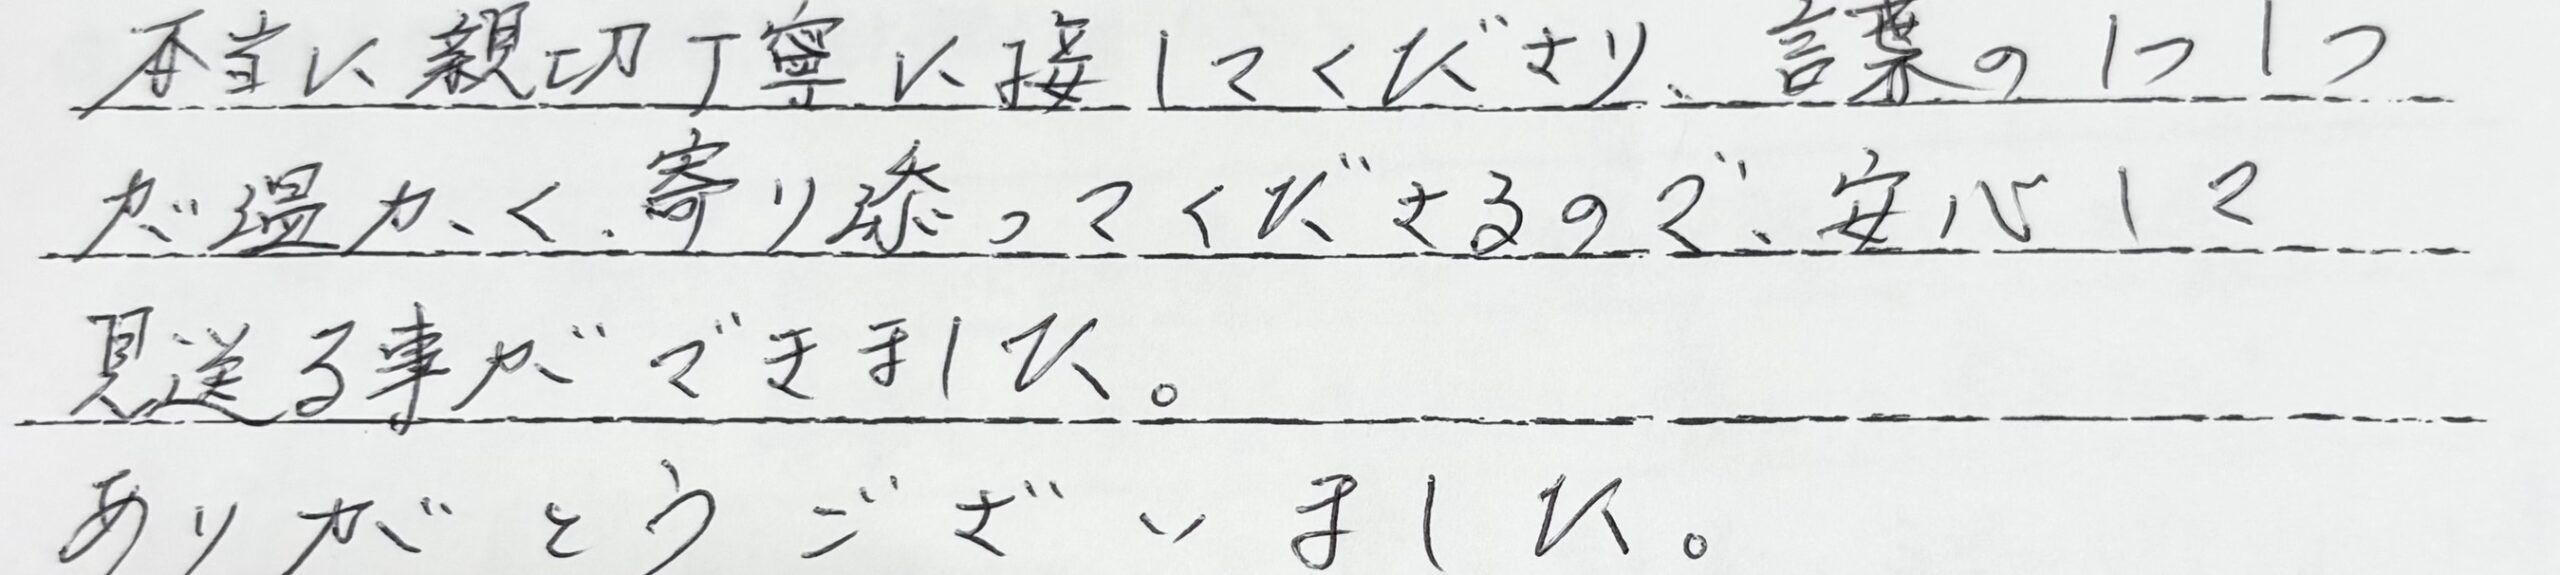 本当に親切丁寧に接してくださり、言葉の1つ1つ
が温かく、寄り添ってくださるので、安心して
見送る事ができました。
ありがとうございました。